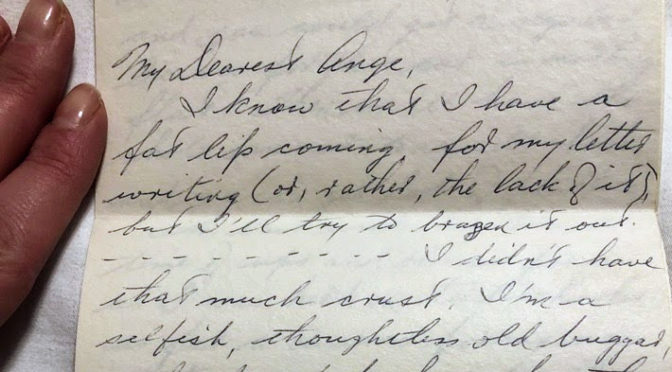 My Dearest Ange,
I know that I have a
fat lip coming for my letter
writing (or, rather, the lack of it)
but I'll try to brazen it out.
- - - - - - - - - I didn't have
that much crust. I'm a
selfish, thoughtless old buggar,